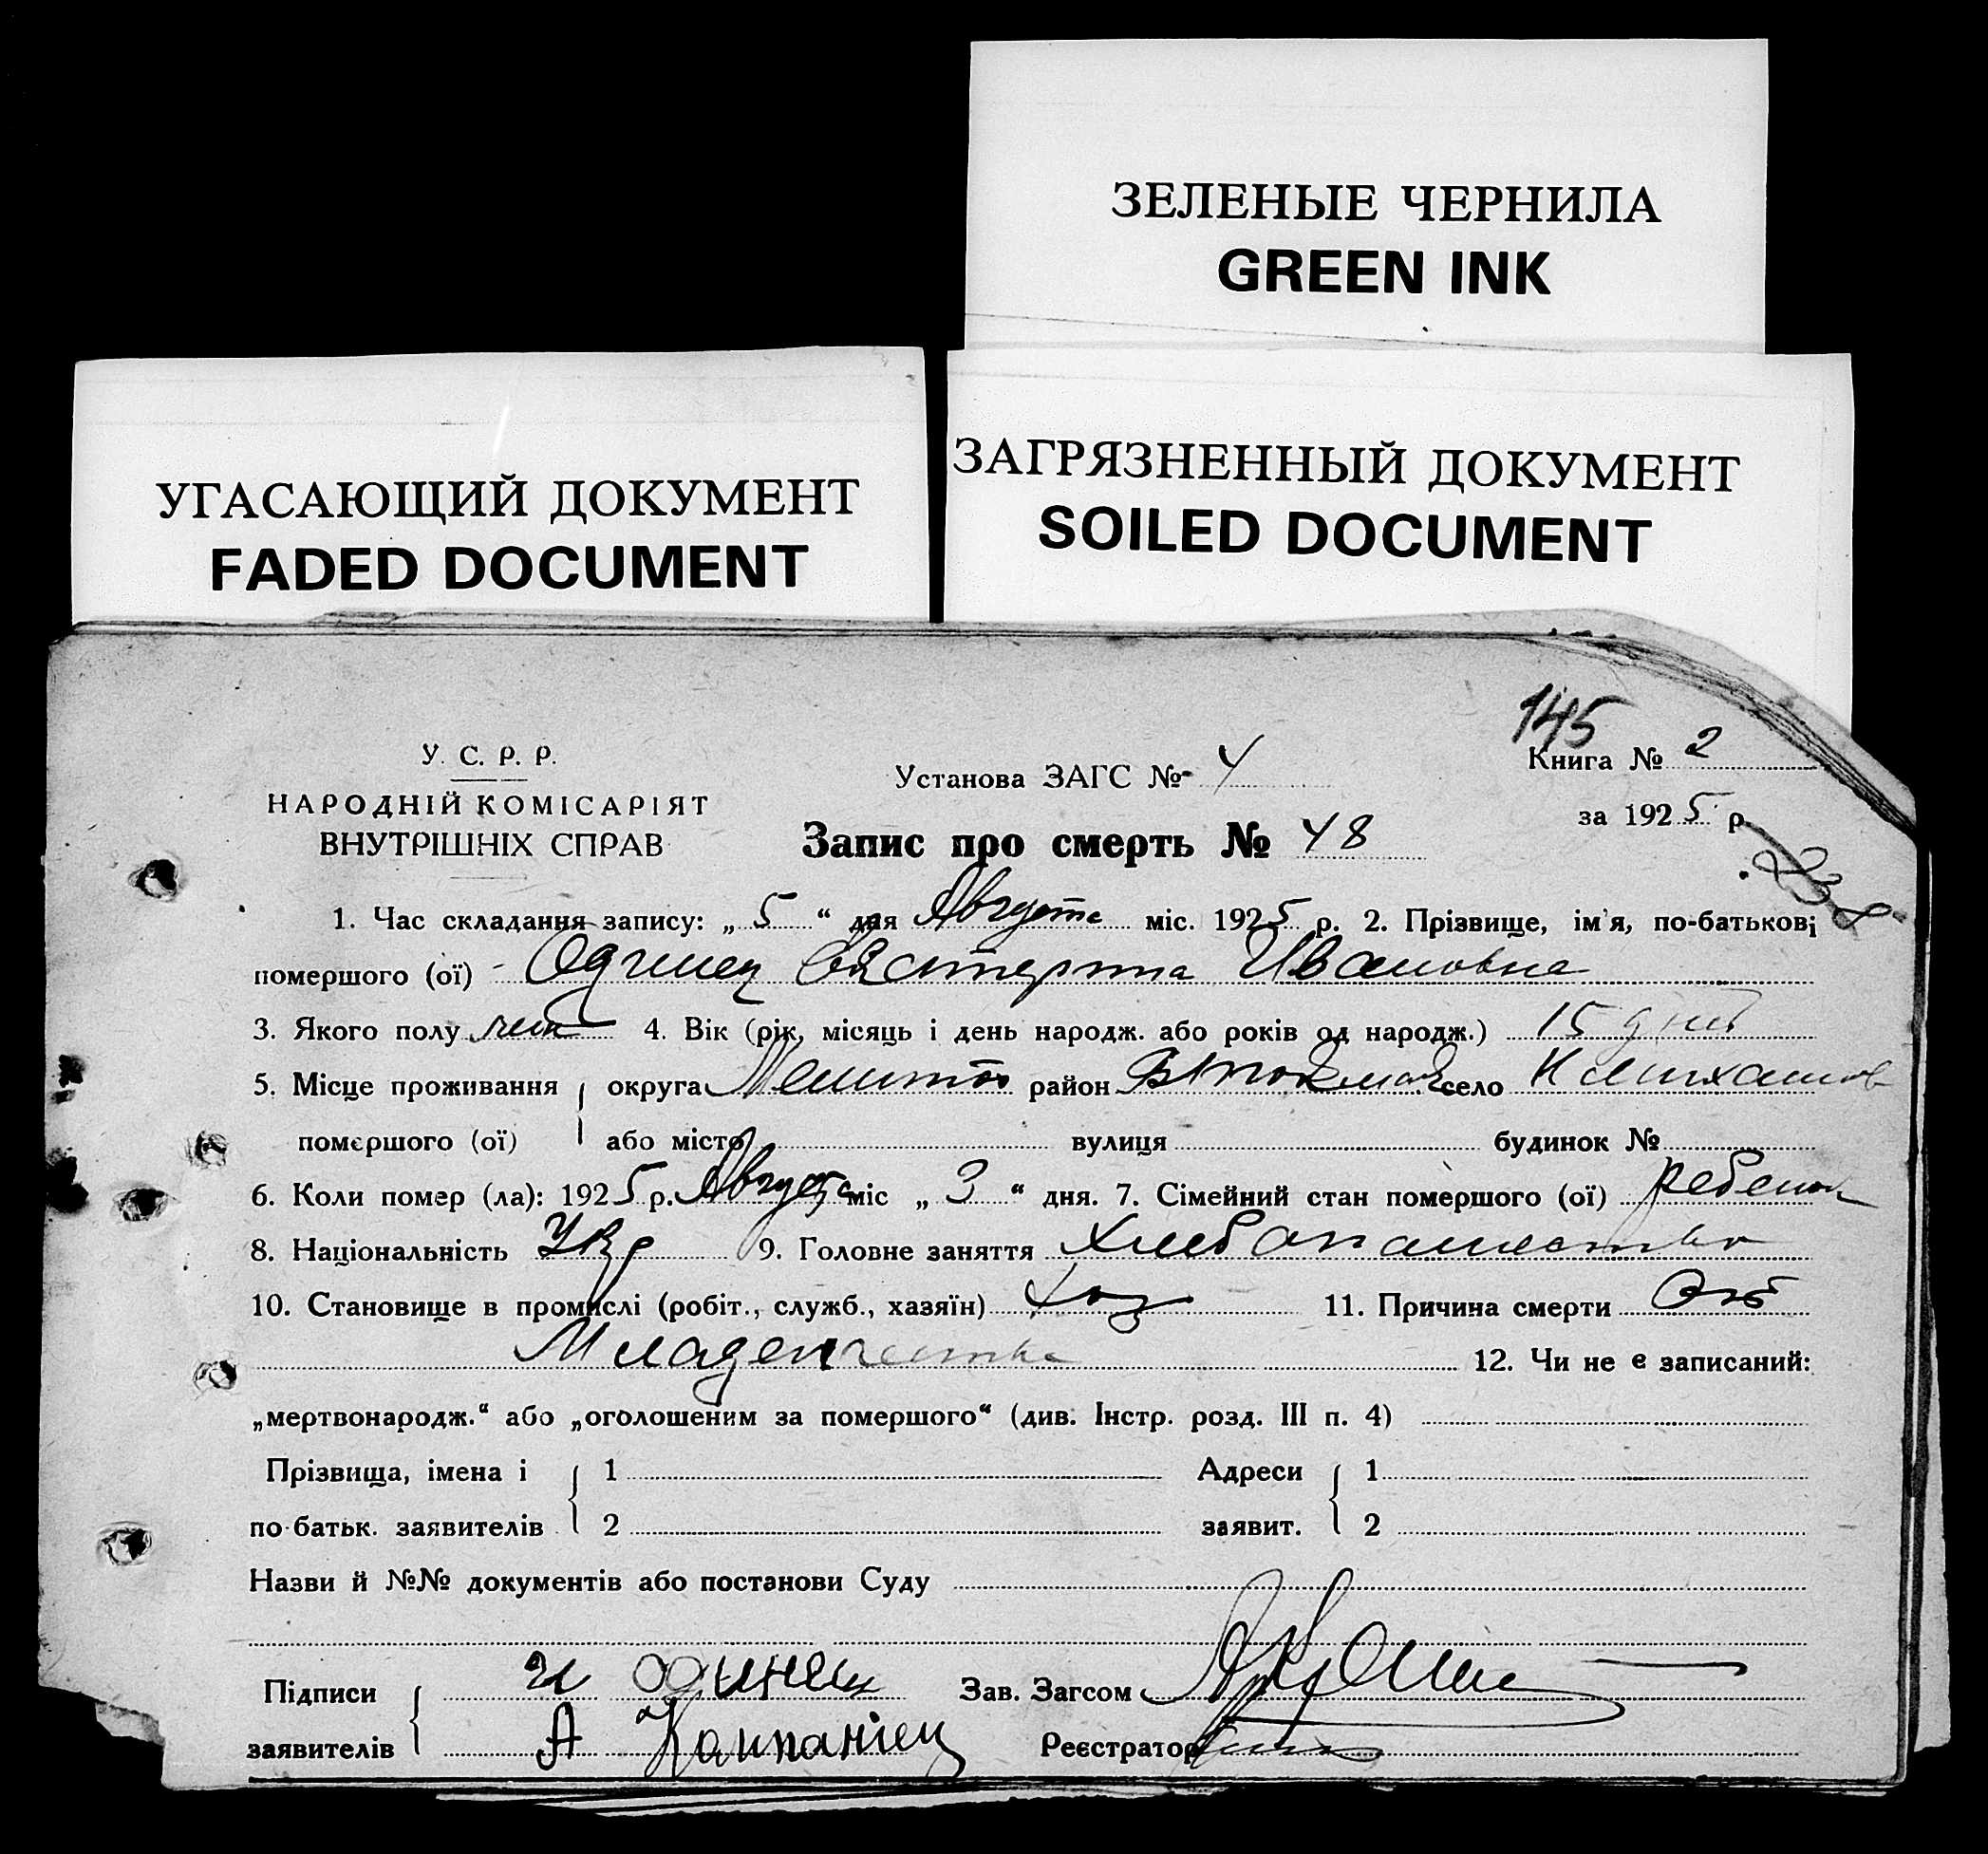 ЗЕЛЕНЫЕ ЧЕРНИЛА
GREEN INK
УГАСАЮЩИЙ ДОКУМЕНТ
FADED DOCUMENT
ЗАГРЯЗНЕННЫЙ ДОКУМЕНТ
SOILED DOCUMENT
145
У. С. Р. Р.
НАРОДНІЙ КОМІСАРІЯТ
ВНУТРІШНІХ СПРАВ
Установа ЗАГС № 4
Книга № 2
за 1925 р.
Запис про смерть № 48
1. Час складання запису: „5“ дня Августа міс. 1925 р. 2. Прізвище, ім'я, по-батькові
помершого (ої) Одинец Екатерина Ивановна
3. Якого полу жен 4. Вік (рік, місяць і день народж. або років од народж.) 15 дней
5. Місце проживання округа Мелитоп район село
помершого (ої) або місто вулиця будинок №
6. Коли помер (ла): 1925 р. Августа міс „3“ дня. 7. Сімейний стан помершого (ої) ребенок
8. Національність Укр 9. Головне заняття Хлебопашество
10. Становище в промислі (робіт., служб., хазяїн) Хоз 11. Причина смерти От
Младенчества 12. Чи не є записаний:
„мертвонародж.“ або „оголошеним за помершого“ (див. Інстр. розд. III п. 4)
Прізвища, імена і 1 Адреси 1
по-батьк. заявителів 2 заявит. 2
Назви й №№ документів або постанови Суду
Підписи и Одинец Зав. Загсом
заявителів А Реєстратор